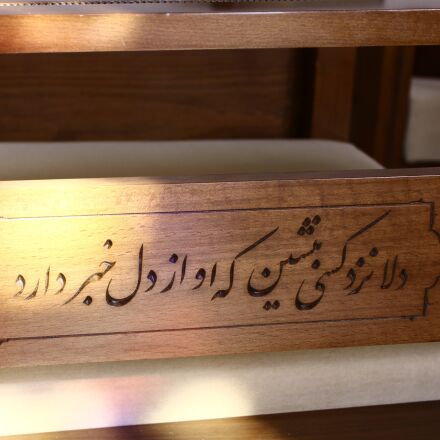 دلا نزد کسی بنشین که او از دل خبر دارد